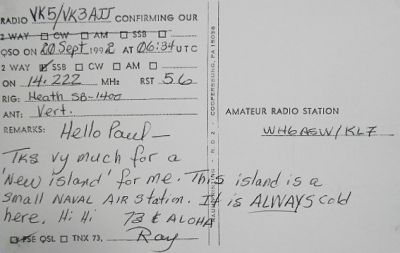 RADIO VK5/VK3AJJ CONFIRMING OUR
2 WAY □ CW □ AM □ SSB □
QSO ON 20 Sept 1992 AT 06:34 UTC
2 WAY ☑ SSB □ CW □ AM □
ON 14.222 MHz RST 56
RIG: Heath SB-1400
ANT: Vert.
REMARKS: Hello Paul—
Tks vy much for a
'New island' for me. This island is a
small NAVAL AIR Station. It is ALWAYS cold
here. Hi Hi 73 & ALOHA
□ PSE QSL □ TNX 73, Ray
RAUMPRINTING • R.D. 2 • COOPERSBURG, PA 18036
AMATEUR RADIO STATION
WH6ASW/KL7